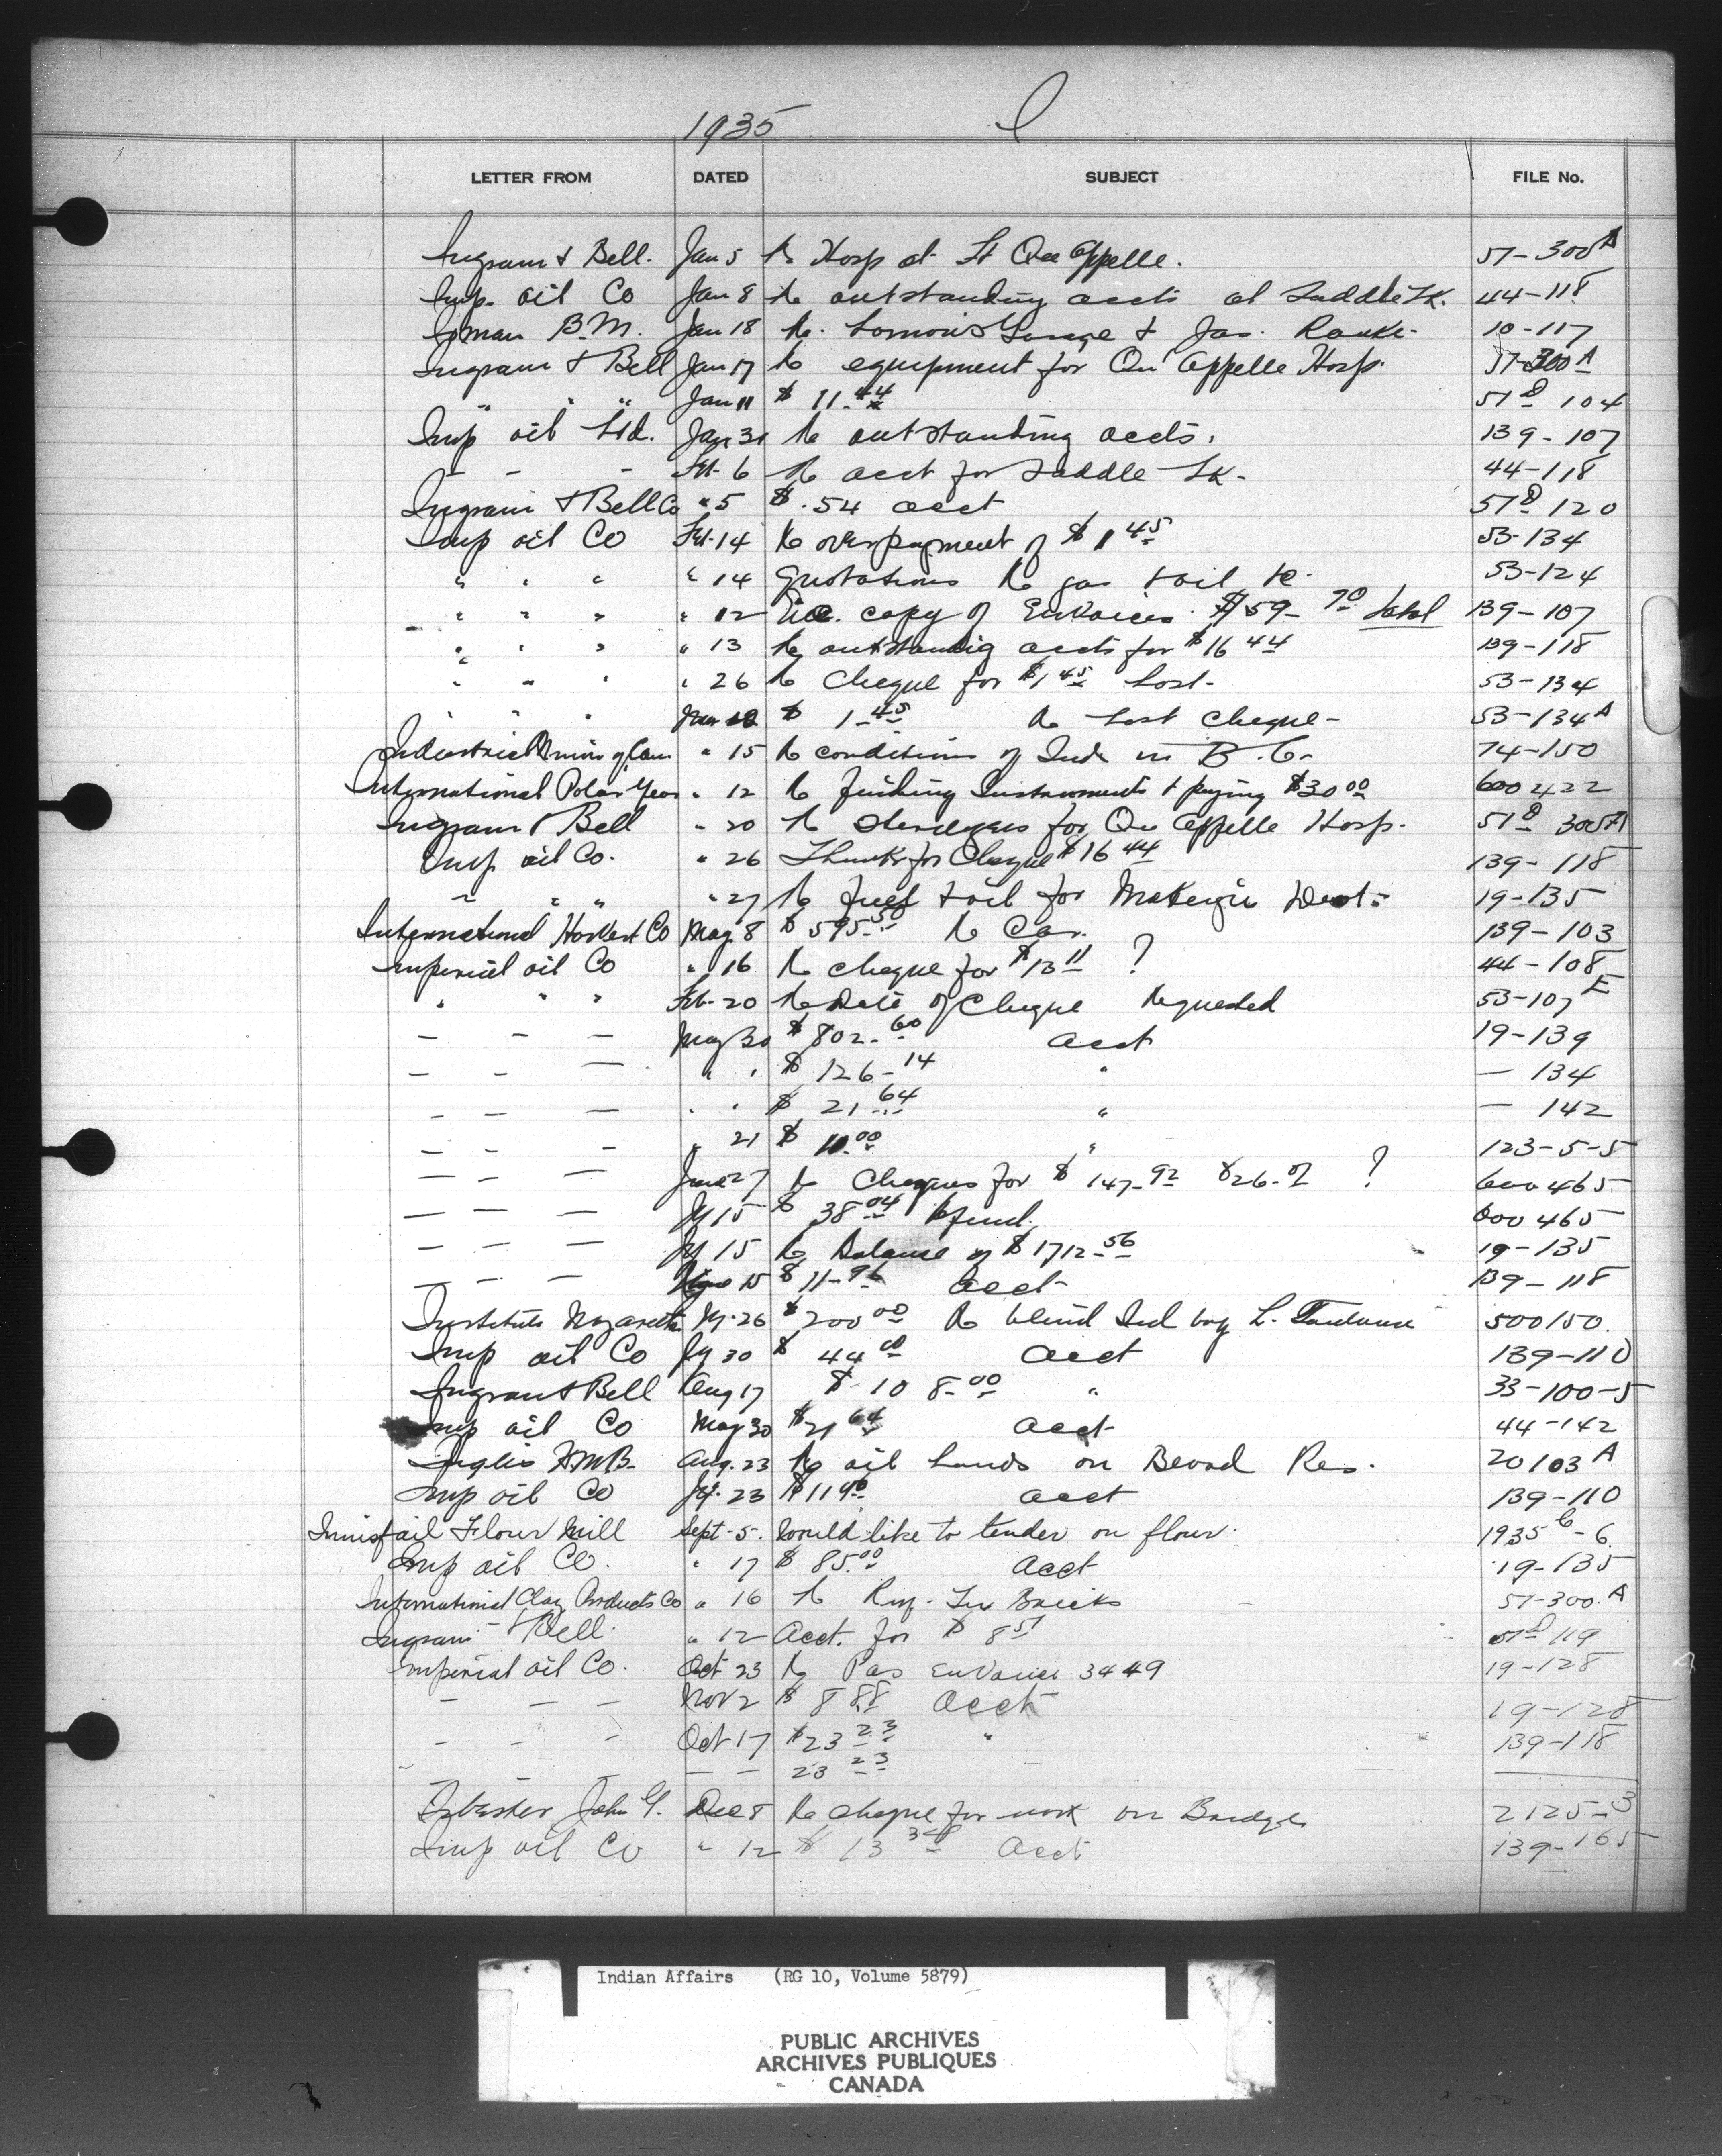 1935 I
LETTER FROM DATED SUBJECT FILE No.
Ingram & Bell. Jan 5 Re Hosp at Ft Qu Appelle. 51-300A
Imp. oil Co Jan 8 Re outstanding accts at Saddle Lk. 44-118
B.M. Jan 18 Re. Garage & Jas. 10-117
Ingram & Bell Jan 17 Re equipment for Qu Appelle Hosp. 51-300 A
" " " Jan 11 $ 11.44 51D 104
Imp oil Ltd. Jan 31 Re outstanding accts. 139-107
- - - Feb. 6 Re acct for Saddle Lk- 44-118
Ingram & Bell Co " 5 $ .54 acct 51D 120
Imp oil Co Feb. 14 Re overpayment of $ 1 45 53-134
" " " " 14 Quotations Re gas & oil 53-124
" " " " 12 copy of $ 59-70 total 139-107
" " " " 13 Re outstanding accts for $16 44 139-118
" " " " 26 Re Cheque for $1 45 Lost- 53-134
" " " Mar 12 $ 1-45 Re Lost Cheque- 53-134A
Industrial " 15 Re conditions of Inds in B.C. 74-150
International Polar Year " 12 Re finding Instruments & paying $30 00 600422
Ingram & Bell " 20 Re for Qu Appelle Hosp. 51D 300A
Imp oil Co. " 26 Thanks for Cheque $16 44 139-118
" " " " 27 Re fuel & oil for McKenzie Dist. 19-135
International Harvest Co May 8 $ 595.50 Re Car. 139-103
Imperial oil Co " 16 Re cheque for $13 11 ? 44-108
" " " Feb. 20 Re Date of Cheque requested 53-107 E
- - - May 30 $ 802-60 acct 19-139
- - - " " $ 126-14 " - 134
- - - " " $ 21 64 " - 142
- - - " 21 $ 10.00 " 123-5-5
- - - June 27 Re Cheques for $ 147-92 $26- ? 600465
- - - Jy 15 $ 38 04 Refund. 600465
- - - Jy 15 Re Balance of $ 1712-56 19-135
- - - 15 $ 11-96 acct 139-118
Institute Nazareth Jy. 26 $ 200 00 Re blind Ind boy L. 500150.
Imp oil Co Jy 30 $ 44 acct 139-110
Ingram & Bell Aug 17 $ 10 8-00 " 33-100-5
Imp oil Co May 30 $21 64 acct 44-142
Inglis Aug. 23 Re oil lands on Blood Res. 20103 A
Imp oil Co Jy. 23 $11 acct 139-110
Innisfail Flour Mill Sept-5. Would like to tender on flour. 1935 6-6
Imp oil Co. " 17 $ 85.00 acct 19-135
International Clay Products Co " 16 Re Bricks 51-300.A
Ingram & Bell. " 12 Acct. for $ 8 51 51D 119
Imperial oil Co. Oct 23 Re 3449 19-128
- - - Nov 2 $ 8 88 acct 19-128
- - - Oct 17 $23 23 " 139-118
- - - - - 23 23
Isbister John G. Dec 8 Re cheque for work on Bridge 2125-3
Imp oil Co " 12 $ 13 34 Acct 139-165
Indian Affairs (RG 10, Volume 5879)
PUBLIC ARCHIVES
ARCHIVES PUBLIQUES
CANADA